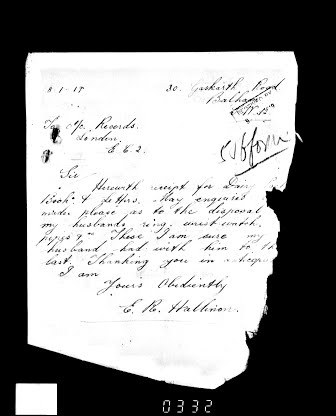 8-1-18 30. Gaskarth Road
Balham
S.W.
To o/c. Records.
London.
E.C.2.
Sir
Herewith receipt for Diary
Book & letters. May
under please as to the disposal
my husbands ring, wrist watch,
These I am sure my
husband had with him to the
last. Thanking you in
I am
Yours Obediently
E. R. Hallinon.
0332